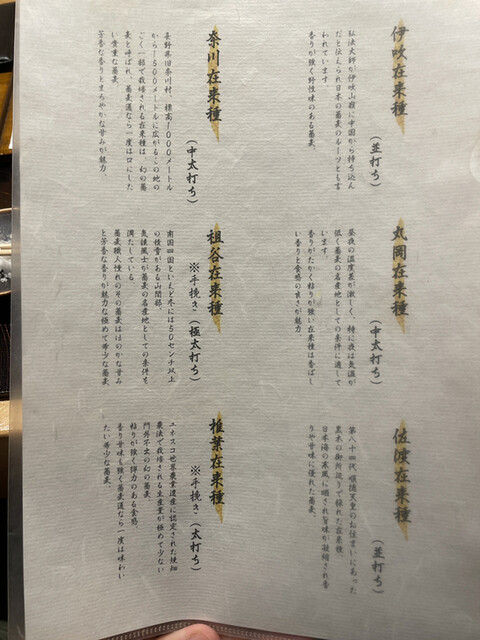 伊吹在来種
（並打ち）
弘法大師が伊吹山麓に中国から持ち込ん
だと伝えられ日本の蕎麦のルーツとも言
われています。
香りが強く野性味のある蕎麦。
丸岡在来種
（中太打ち）
昼夜の温度差が激しく、特に夜は気温が
低く蕎麦の名産地としての条件に適して
います。
香りがたかく粘りが強い在来種は香ばし
い香りと食感の良さが魅力。
佐渡在来種
（並打ち）
第八十四代 順徳天皇のお住まいにあった
黒木の御所辺りで採れた在来種。
日本海の寒風に晒され旨味が凝縮され香
りや甘味に優れた蕎麦。
奈川在来種
（中太打ち）
長野県旧奈川村、標高1000メートル
から1500メートルに広がるこの地の
ごく一部で栽培される在来種は、幻の蕎
麦と呼ばれ、蕎麦通なら一度は口にした
い貴重な蕎麦。
芳香な香りとまろやかな甘みが魅力。
祖谷在来種
※手挽き（極太打ち）
南国四国といえど冬には50センチ以上
の積雪がある山間部。
気候風土が蕎麦の名産地としての条件を
満たしている
蕎麦職人憧れのその蕎麦はほのかな甘み
と芳香な香りが魅力な極めて希少な蕎麦。
椎葉在来種
※手挽き（太打ち）
ユネスコ世界農業遺産に認定された焼畑
農法で栽培される生産量が極めて少ない
門外不出の幻の蕎麦。
粘りが強く弾力のある食感、
香り甘味も強く蕎麦通なら一度は味わい
たい希少な蕎麦。